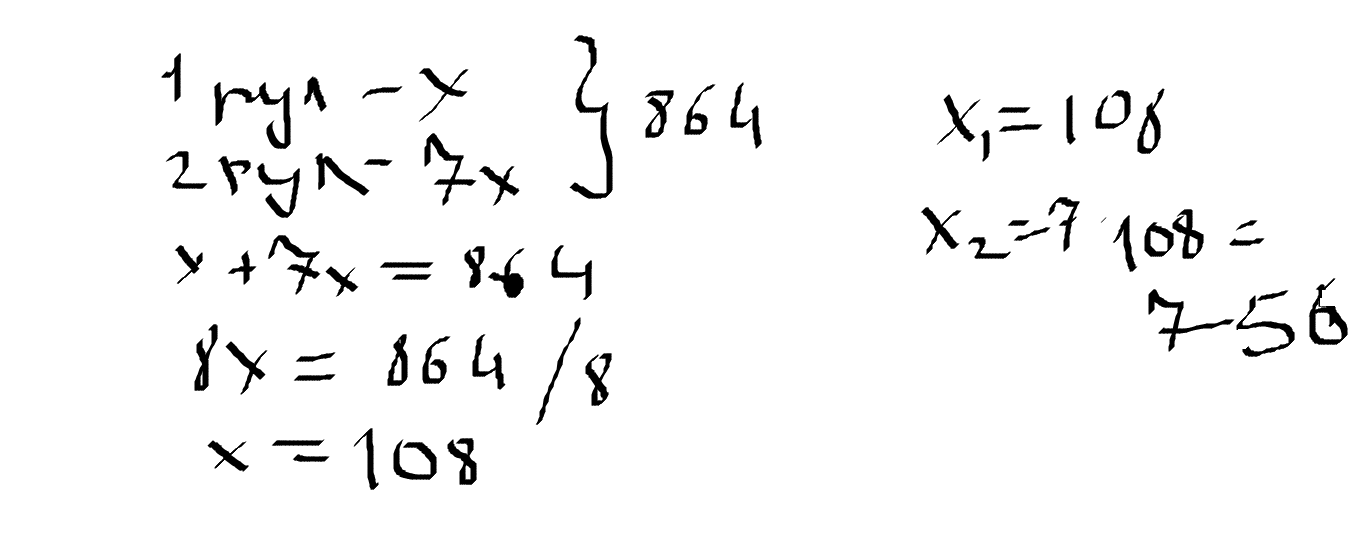 1 рул - x } 864
2 рул - 7x
x + 7x = 864
8x = 864 / 8
x = 108
x₁ = 108
x₂ = 7 · 108 =
756